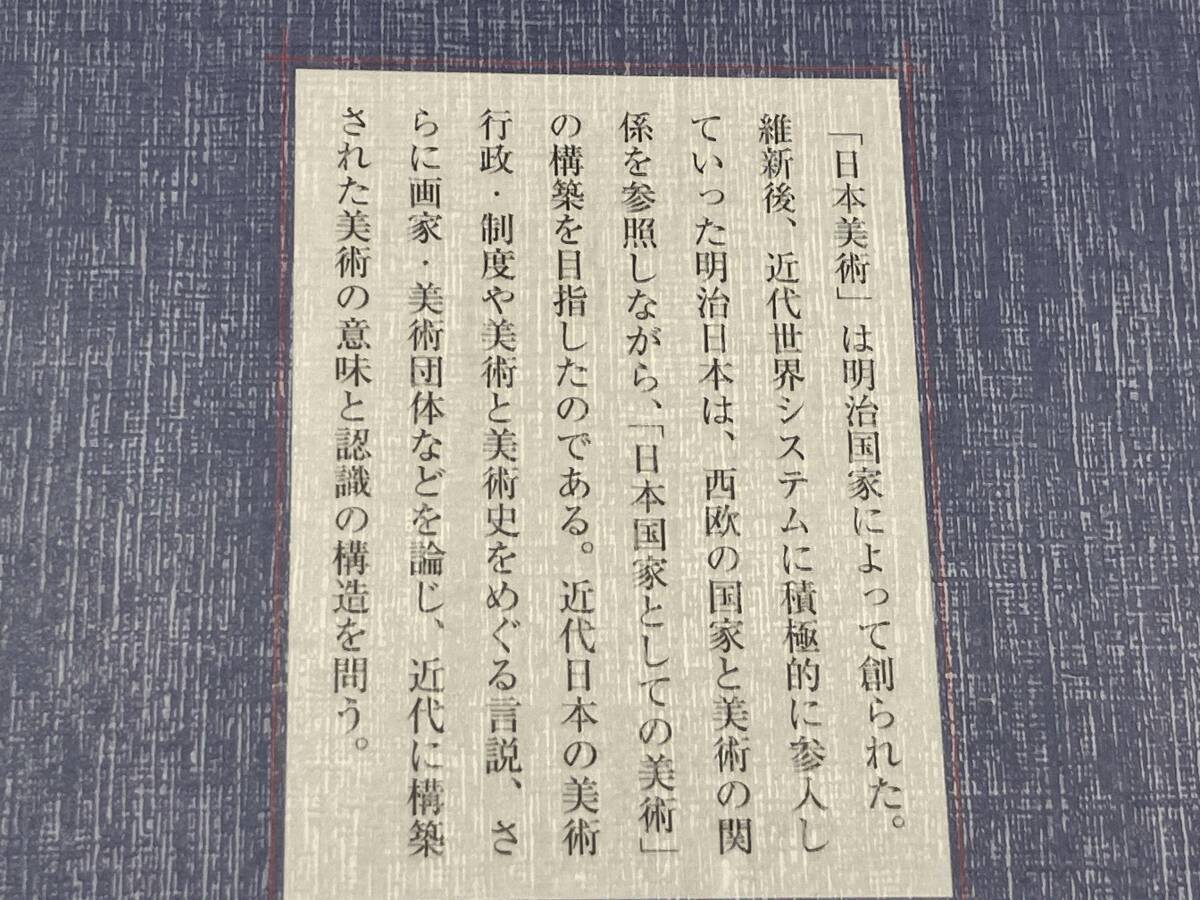 「日本美術」は明治国家によって創られた。
維新後、近代世界システムに積極的に参入し
ていった明治日本は、西欧の国家と美術の関
係を参照しながら、「日本国家としての美術」
の構築を目指したのである。近代日本の美術
行政・制度や美術と美術史をめぐる言説、さ
らに画家・美術団体などを論じ、近代に構築
された美術の意味と認識の構造を問う。